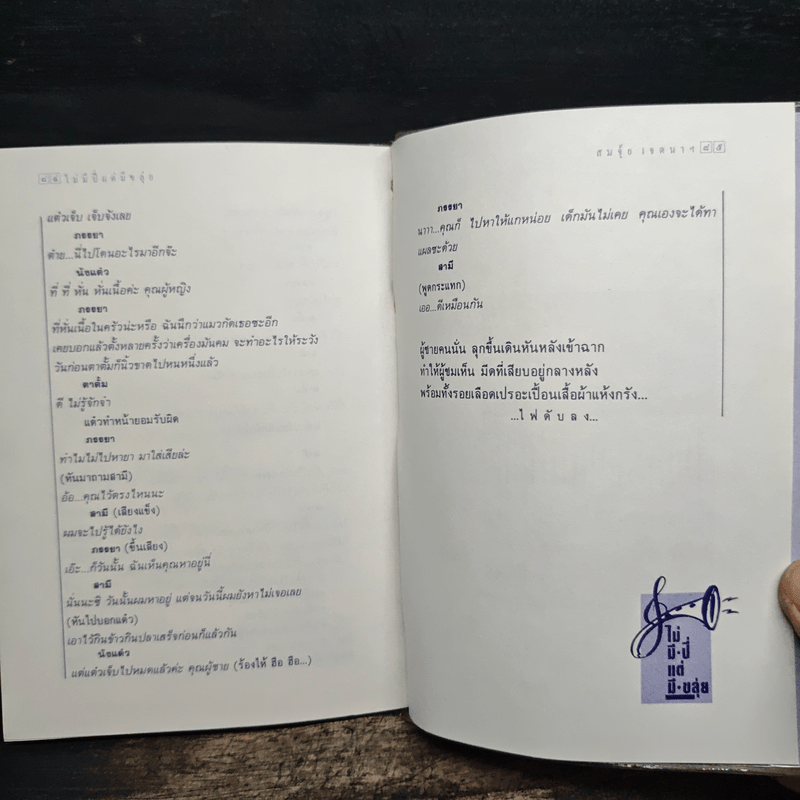 ๔๔ ไม่มีปี่แต่มีขลุ่ย
แต๋วเจ็บ เจ็บจังเลย
ภรรยา
ต๋าย...นี่ไปโดนอะไรมาอีกจ๊ะ
นังแต๋ว
ที่ ที่ หั่น หั่นเนื้อค่ะ คุณผู้หญิง
ภรรยา
ที่หั่นเนื้อในครัวน่ะหรือ ฉันนึกว่าแมวกัดเธอซะอีก
เคยบอกแล้วตั้งหลายครั้งว่าเครื่องมันคม จะทำอะไรให้ระวัง
วันก่อนตาตั้มก็นิ้วขาดไปหนหนึ่งแล้ว
ตาตั้ม
ดี ไม่รู้จักจำ
แต๋วทำหน้ายอมรับผิด
ภรรยา
ทำไมไม่ไปหายา มาใส่เสียล่ะ
(หันมาถามสามี)
อ้อ...คุณไว้ตรงไหนนะ
สามี (เสียงแข็ง)
ผมจะไปรู้ได้ยังไง
ภรรยา (ขึ้นเสียง)
เอ๊ะ...ก็วันนั้น ฉันเห็นคุณหาอยู่นี่
สามี
นั่นนะซิ วันนั้นผมหาอยู่ แต่จนวันนี้ผมยังหาไม่เจอเลย
(หันไปบอกแต๋ว)
เอาไว้กินข้าวกินปลาเสร็จก่อนก็แล้วกัน
นังแต๋ว
แต่แต๋วเจ็บไปหมดแล้วค่ะ คุณผู้ชาย (ร้องไห้ ฮือ ฮือ...)
สมจุ้ย เจตนาฯ ๔๕
ภรรยา
นาาา...คุณก็ ไปหาให้แกหน่อย เด็กมันไม่เคย คุณเองจะได้ทา
แผลซะด้วย
สามี
(พูดกระแทก)
เออ...ดีเหมือนกัน
ผู้ชายคนนั่น ลุกขึ้นเดินหันหลังเข้าฉาก
ทำให้ผู้ชมเห็น มีดที่เสียบอยู่กลางหลัง
พร้อมทั้งรอยเลือดเปรอะเปื้อนเสื้อผ้าแห้งกรัง...
...ไฟดับลง...
ไม่
มี•ปี่
แต่
มี•ขลุ่ย